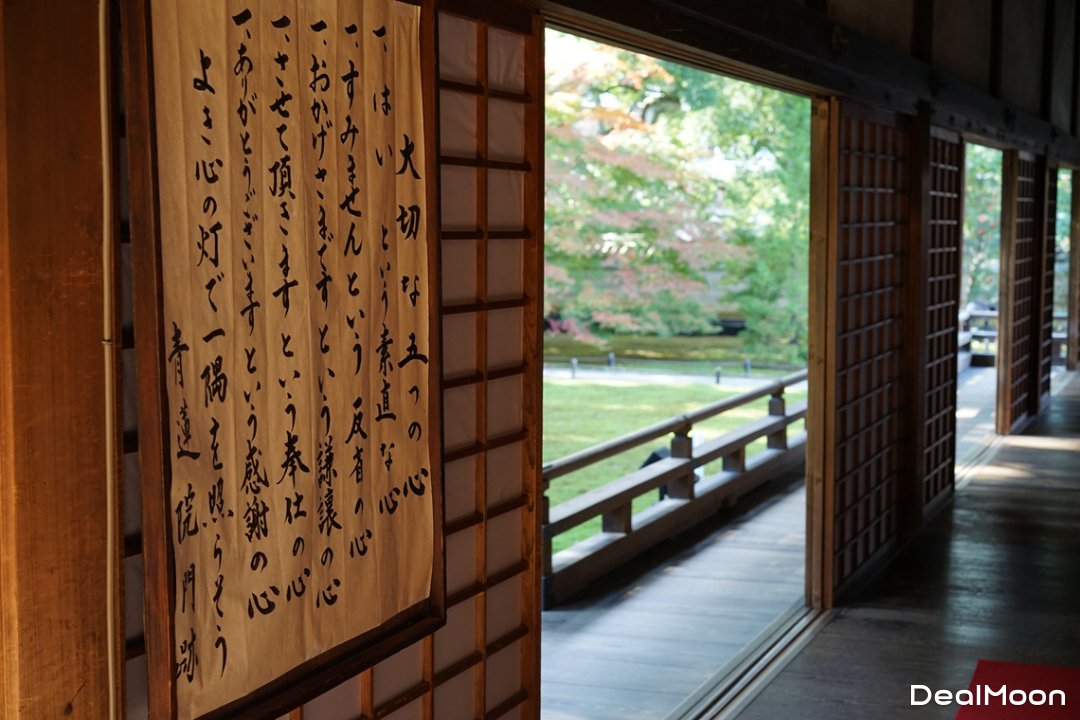 大切な五つの心
一、はい という素直な心
一、すみませんという 反省の心
一、おかげさまです という 謙譲の心
一、させて頂きます という奉仕の心
一、ありがとうございます という感謝の心
よき心の灯で一隅を照らそう
青蓮院門跡
DealMoon